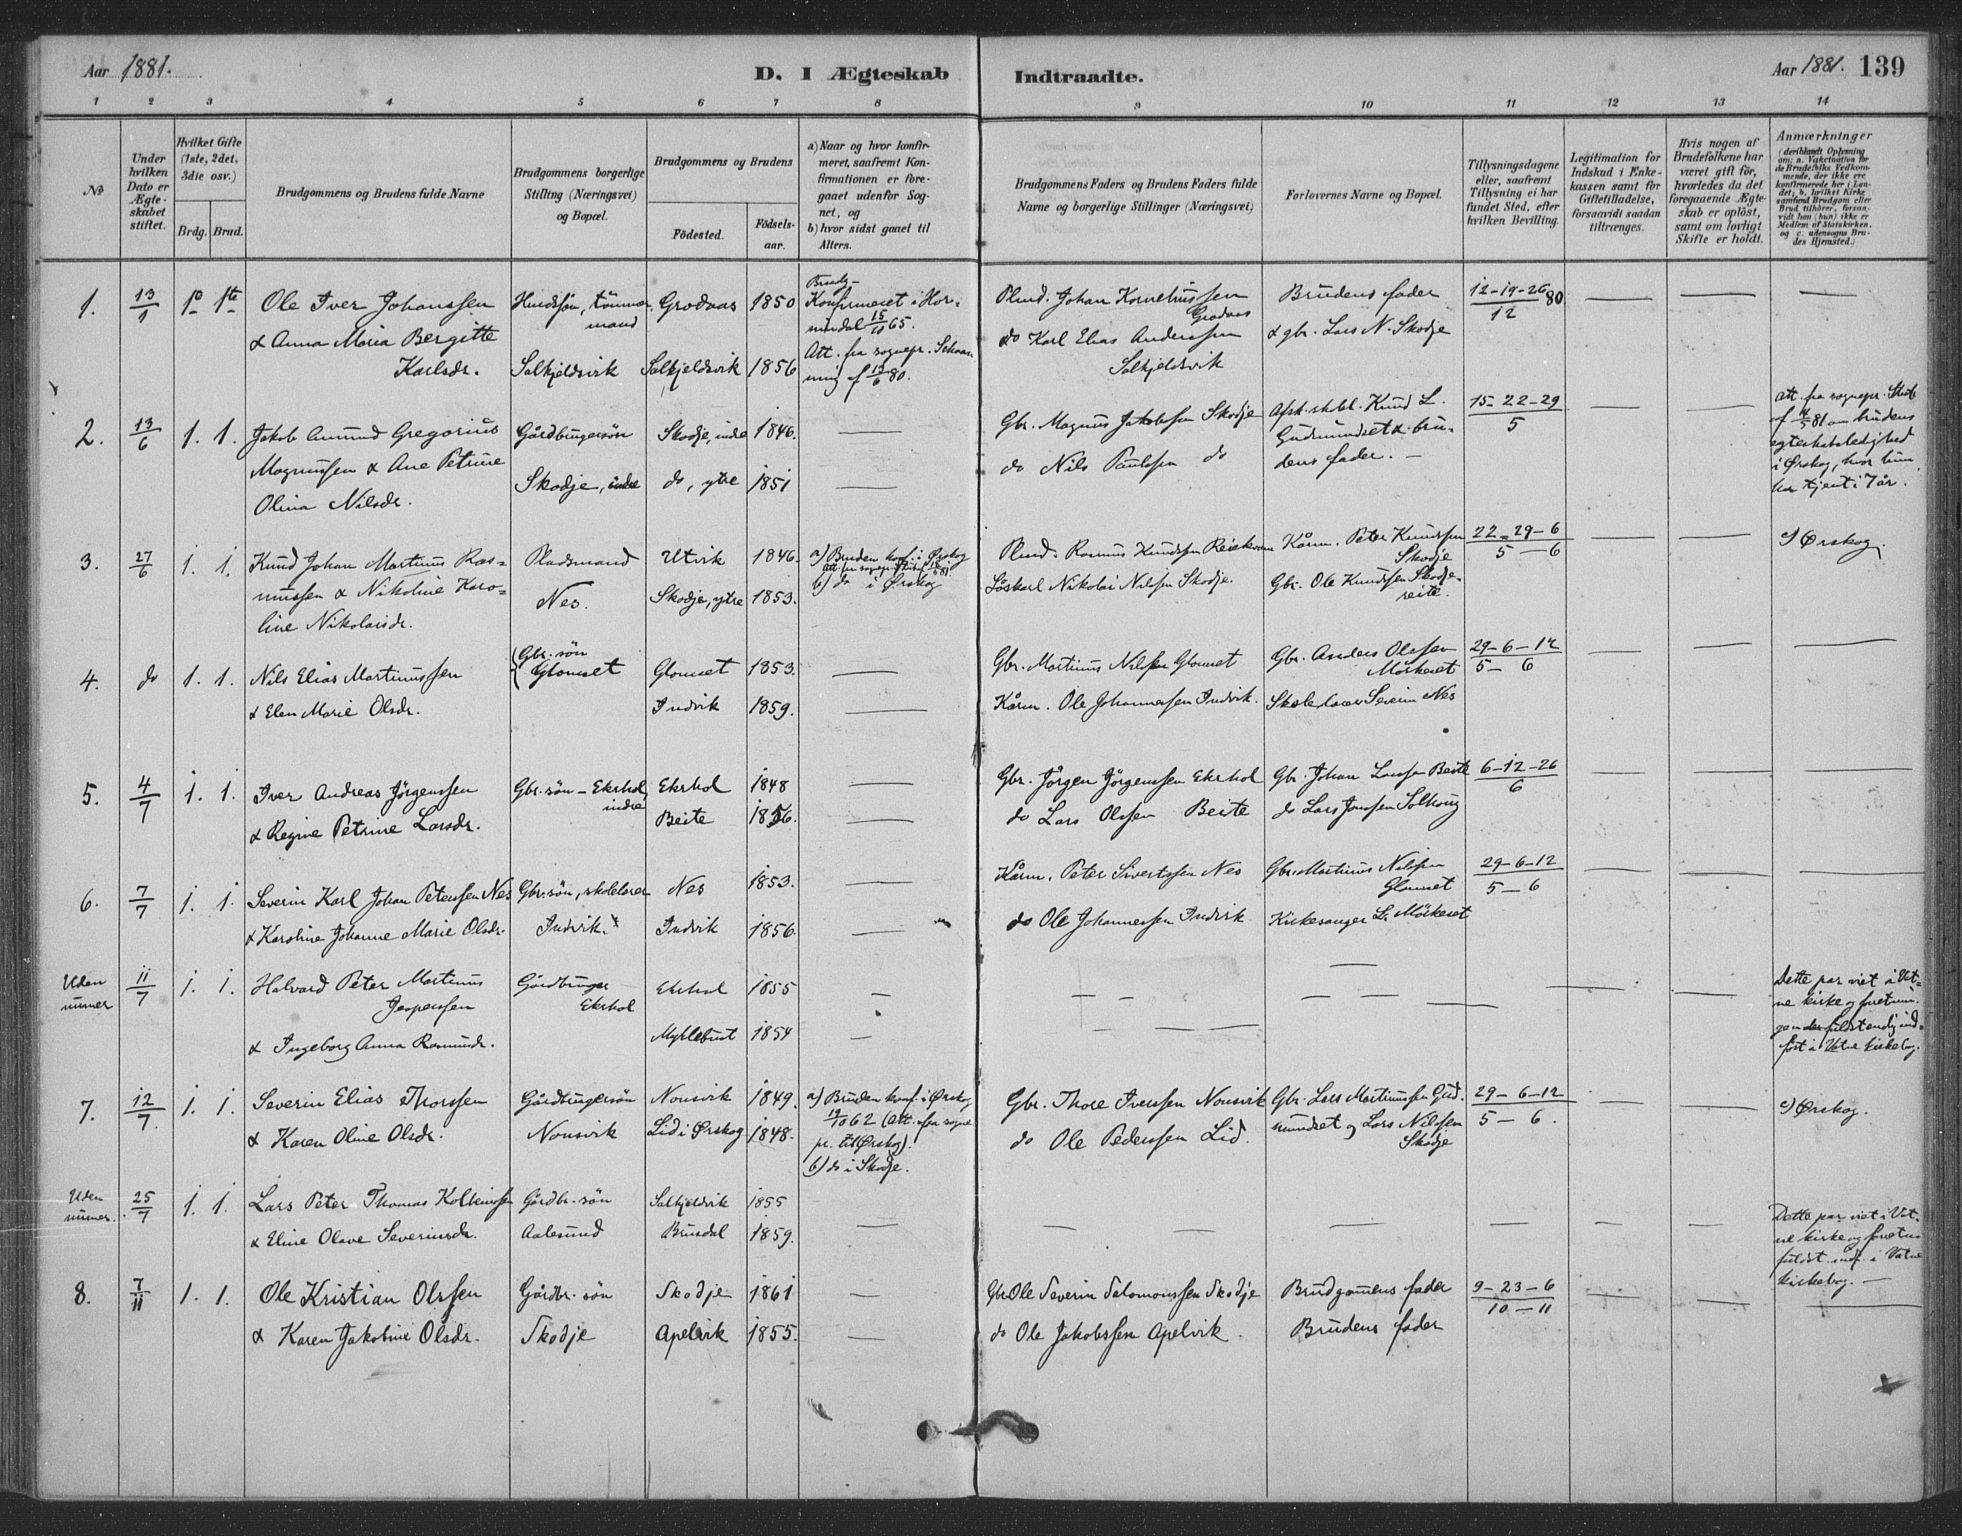 Aar 1881.
D. I Ægteskab Indtraadte.
Aar 1881. 139
1 2 3 4 5 6 7 8 9 10 11 12 13 14
No
Under hvilken Dato er Ægteskabet stiftet.
Hvilket Gifte (1ste, 2det, 3die osv.)
Brdg. Brud.
Brudgommens og Brudens fulde Navne
Brudgommens borgerlige Stilling (Næringsvei) og Bopæl.
Brudgommens og Brudens
Födested.
Födselsaar.
a) Naar og hvor konfirmeret, saafremt Konfirmationen er foregaaet udenfor Sognet, og
b) hvor sidst gaaet til Alters.
Brudgommens Faders og Brudens Faders fulde Navne og borgerlige Stillinger (Næringsvei)
Forlovernes Navne og Bopæl.
Tillysningsdagene eller, saafremt Tillysning ei har fundet Sted, efter hvilken Bevilling.
Legitimation for Indskud i Enkekassen samt for Giftetilladelse, forsaavidt saadan tiltrænges.
Hvis nogen af Brudefolkene har været gift för, hvorledes da det foregaaende Ægteskab er oplöst, samt om lovligt Skifte er holdt.
Anmærkninger
1. 13/1 1o 1te Ole Iver Johanssen
& Anna Maria Bergitte
Karlsdr.
tömmermand
Solkjeldsvik
Grodaas 1850
Solkjeldsvik 1856
Brudg.
Konfirmeret i Hornindal 15/11 65.
Att. fra sognepr. Schaanning af 13/6 80.
Plmd. Johan Korneliussen
Grodaas
do Karl Elias Anderssen
Solkjeldsvik
Brudens fader
& gbr. Lars N. Skodje
12-19-26/12 80
2. 13/6 1. 1. Jakob Amund Gregorius
Magnussen & Ane Petrine
Olina Nilsdr.
Gårdbrugersøn
Skodje, indre
Skodje, indre 1846.
do, ytre 1851
Gbr. Magnus Jakobssen Skodje
do Nils Paulssen do
Afsk. skoll. Knud L.
Gudmundset & brudens fader.
15-22-29/5
Att. fra sognepr.
81 om brudens
egteskabsledighed
i Ørskog, hvor hun
har tjent i 7 år.
3. 27/6 1. 1. Knud Johan Martinus Rasmussen & Nikoline Karoline Nikolaisdr.
Pladsmand
Nes.
Utvik 1846.
Skodje, ytre 1853.
a) Bruden konf. i Ørskog
b) do i Ørskog
Plmd. Rasmus Knudssen
Løskarl Nikolai Nilssen Skodje.
Kårm. Peter Knudssen
Skodje
Gbr. Ole Knudssen Skodjereite.
22-29-6/5-6
c) Ørskog.
4. do 1. 1. Nils Elias Martinussen
& Elen Marie Olsdr.
Gbr. søn
Glomset
Glomset 1853.
Indvik 1859.
Gbr. Martinus Nilssen Glomset
Kårm. Ole Johannessen Indvik.
Gbr. Anders Olassen
Mörkeset
Skolelærer Severin Nes
29-6-12/5-6
5. 4/7 1. 1. Iver Andreas Jörgenssen
& Regine Petrine Larsdr.
Gbr. søn - Ekrhol
indre
Ekrhol 1848
Beite 1856.
Gbr. Jörgen Jörgenssen Ekrhol
do Lars Olssen Beite
Gbr. Johan Larssen Beite
do Lars Jonssen Solhoug
6-12-26/6
6. 7/7 1. 1. Severin Karl Johan Peterssen Nes
& Karoline Johanne Marie Olsdr.
Gbr. søn, skolelærer
Indvik.
Nes 1853.
Indvik 1856.
Kårm. Peter Sivertssen Nes
do Ole Johannessen Indvik
Gbr. Martinus Nilssen
Glomset
Kirkesanger L. Mörkeset
29-6-12/5-6
Uden numer 11/7 1. 1. Halvard Peter Martinus
Jespersen
& Ingeborg Anna Rasmusdr.
Gårdbruger
Ekrhol
Ekrhol 1855
Myklebust 1854
Dette par viet i Vatne kirke og
fuldstendig indført i Vatne kirkebog.
7. 12/7 1. 1. Severin Elias Thorssen
& Karen Oline Olsdr.
Gårdbrugersøn
Nonsvik
Nonsvik 1849.
Lid i Ørskog 1848.
a) Bruden konf. i Ørskog
62 (Att. fra sognepr. til Ørskog).
b) do i Skodje.
Gbr. Thore Iverssen Nonsvik
do Ole Pederssen Lid.
Gbr. Lars Martinussen Gudmundset og Lars Nilssen
Skodje
29-6-12/5-6.
c) Ørskog.
Uden numer. 25/7 1. 1. Lars Peter Thomas
& Eline Olave Severinsdr.
Gårdbr. søn
Aalesund
Solkjeldsvik 1855
Brusdal 1859.
Dette par viet i Vatne kirke og
fuldst. indf. i Vatne
kirkebog.
8. 7/11 1. 1. Ole Kristian Olssen
& Karen Jakobine Olsdr.
Gårdbr. søn
Skodje
Skodje 1861
Apelvik 1855.
Gbr. Ole Severin Salomonssen Skodje
do Ole Jakobssen Apelvik.
Brudgomens fader
Brudens fader
9-23-6/10-11